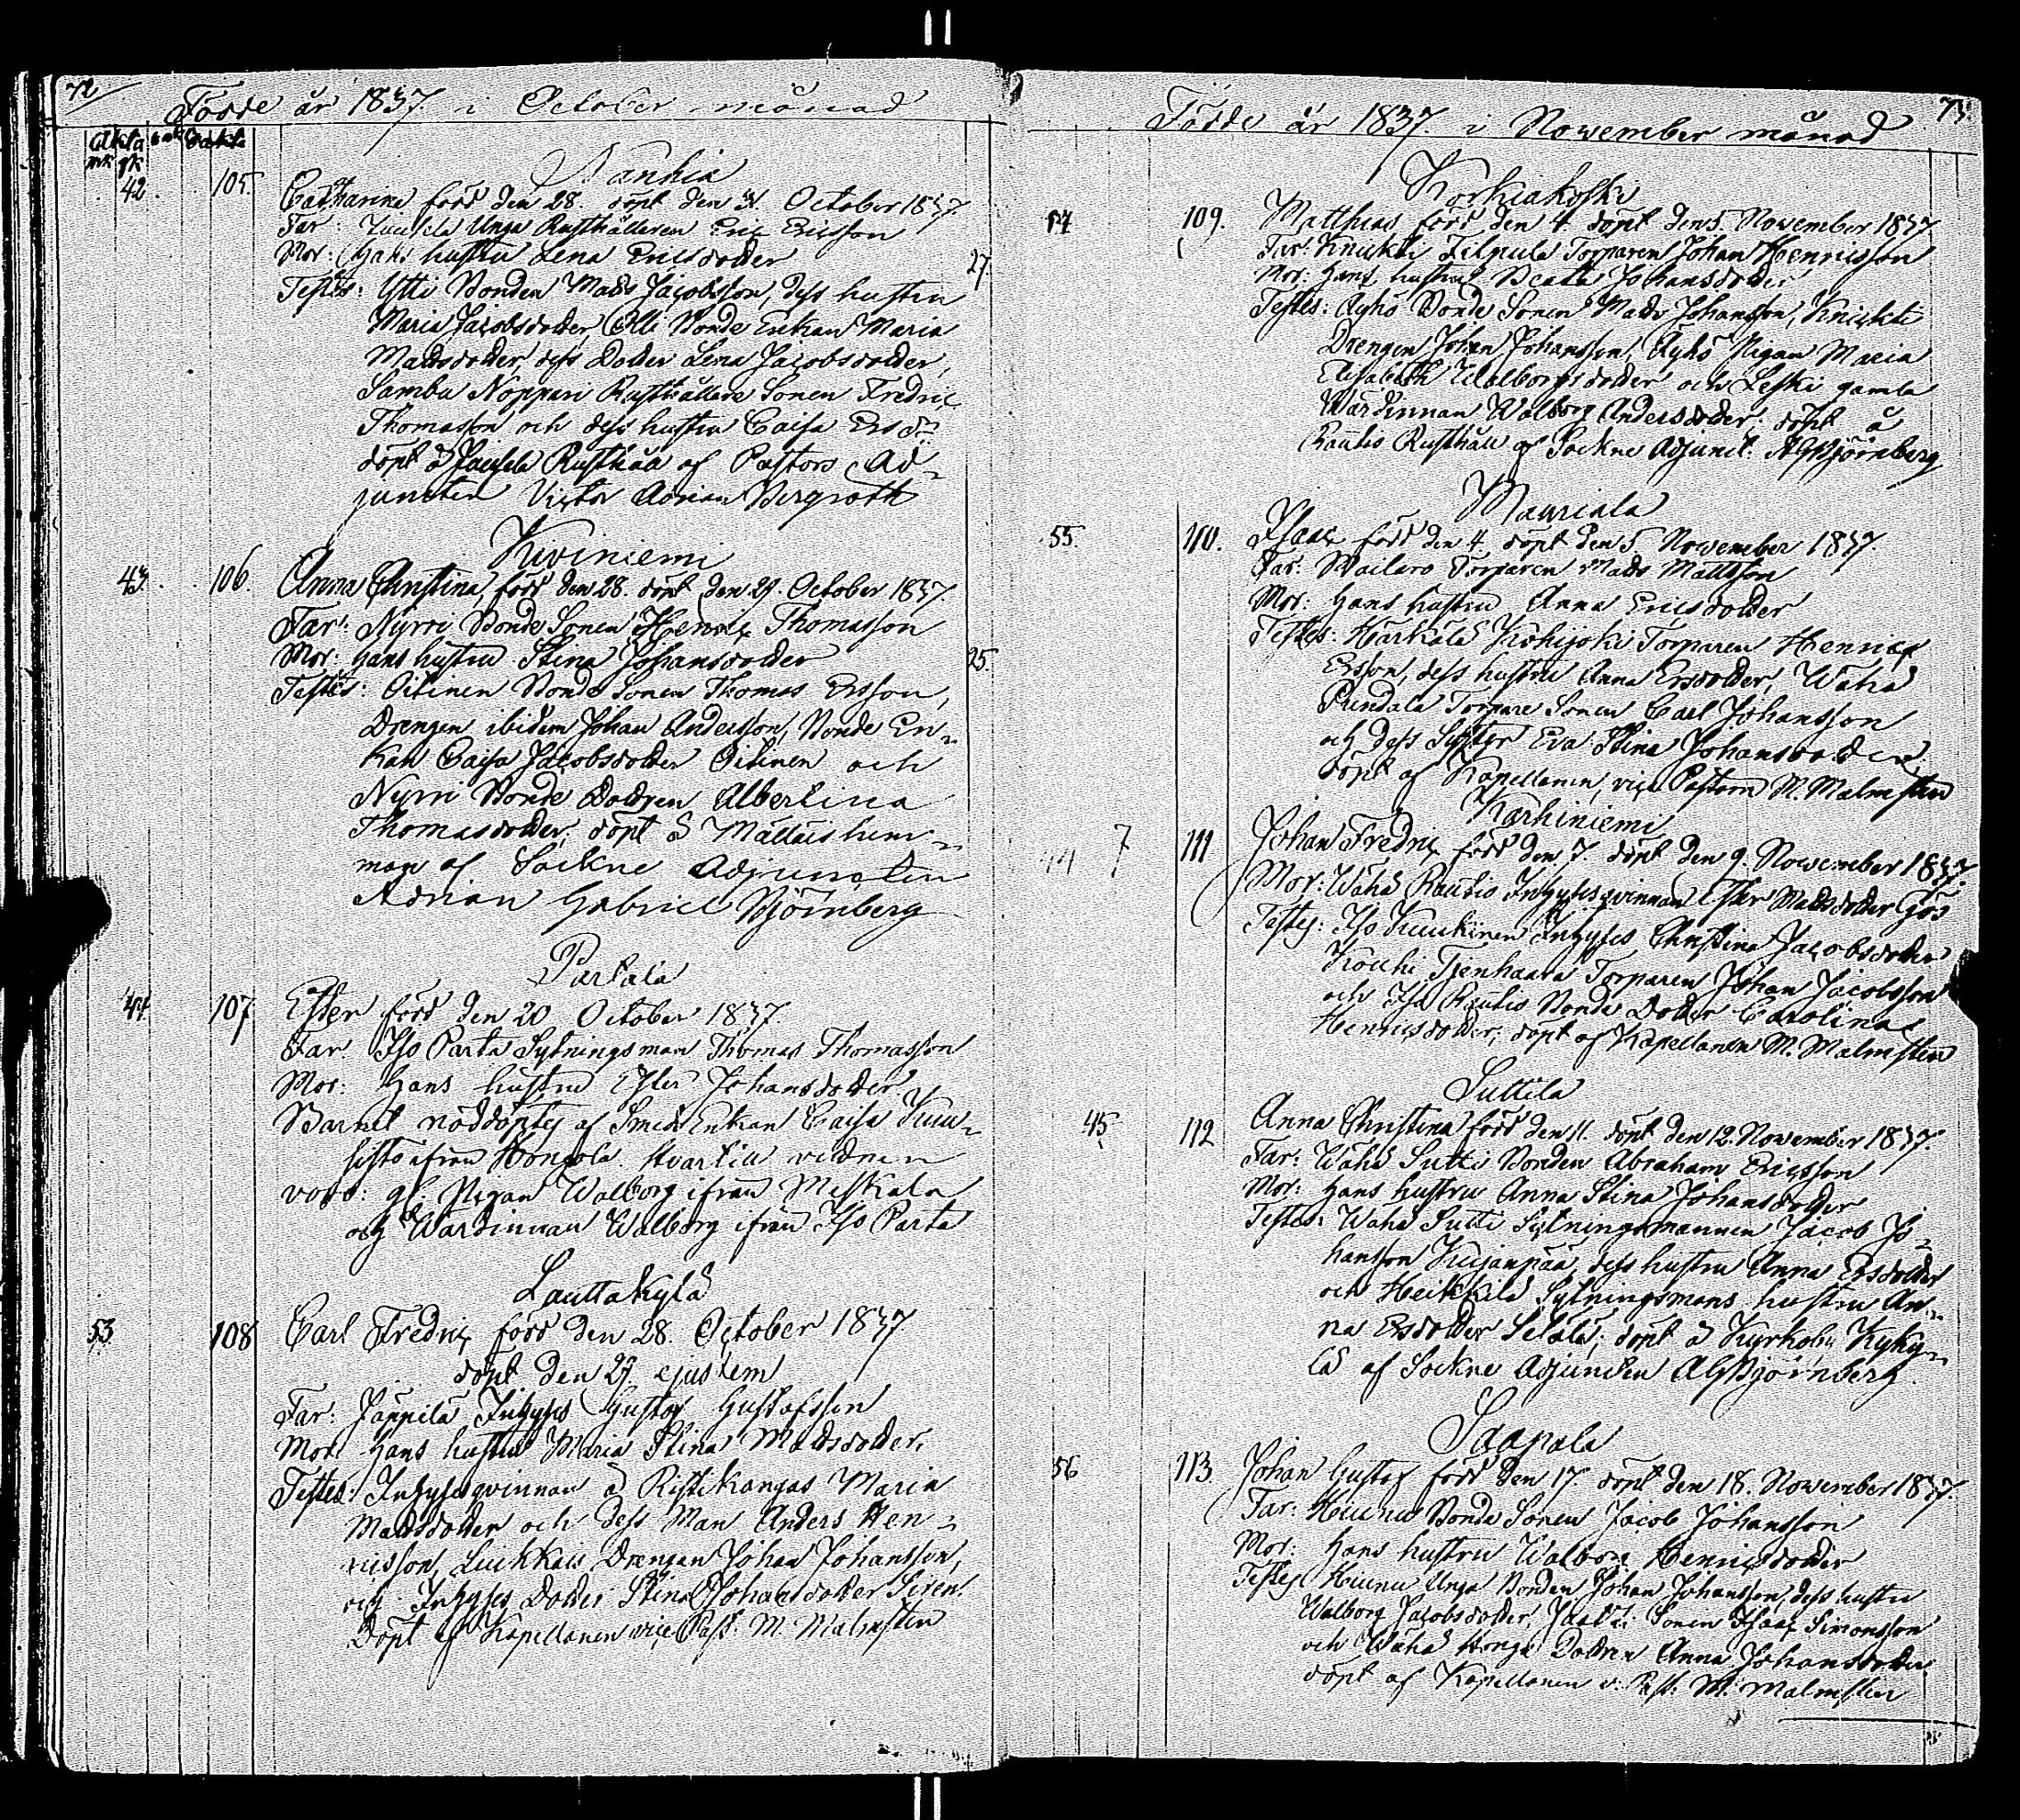 72
Födde år 1837. i October månad
Äkta oäkta
mk qk
Nanhia
42. 105. Catharina född den 28. döpt den 31. October 1837.
Far: Unga Rusthållaren Eric Ericsson
Mor: Hans hustru Lena Ericsdotter
27
Testes: Ytti Bonden Mats Jacobsson, dess hustru
Maria Jacobsdotter, Olli Bonde Enkan Maria
Matsdotter, dess Dotter Lena Jacobsdotter,
Sambu Noppari Rusthållare Sonen Fredric
Thomasson och dess hustru Caisa Ersdr
döpt å Rusthåll af Pastors Ad-
juncten Victor Adrian Bergroth
Kiviniemi
43. 106. Anna Christina, född den 28. döpt den 29. October 1837
Far: Nyrri Bonde Sonen Henric Thomasson
Mor: Hans hustru Stina Johansdotter
25.
Testes: Oitinen Bonde Sonen Thomas Ersson,
Drengen ibidem Johan Andersson, Bonde En-
kan Caisa Jacobsdotter Oitinen och
Nyrri Bonde Dottren Albertina
Thomasdotter, döpt å hem-
man af Sockne Adjuncten
Adrian Gabriel Björnberg
Partala
44. 107 Ester född den 20 October 1837.
Far: Iso Parta Sytningsman Thomas Thomasson
Mor: Hans hustru Ester Johansdotter
Barnet nöddöptes af Smeds Enkan Caisa Kuu-
sisto ifrån Hongola. Hvartill vittnen
voro: gl: Pigan Walborg ifrån Meskala
och Wärdinnan Walborg ifrån Iso Parta
Lauttakylä
53. 108 Carl Fredric född den 28. October 1837
döpt den 29. ejusdem
Far: Jäppilä Inhyses Gustaf Gustafsson
Mor: Hans hustru Maria Stina Matsdotter.
Testes: Inhysesqvinnan å Ristikangas Maria
Matsdotter och dess Man Anders Hen-
ricsson, Luikkais Drengen Johan Johansson,
och Inhyses Dotter Stina Johansdotter Siren.
Döpt af Kapellanen vice Past: M. Malmsten
73.
Födde år 1837. i November månad
Korkiakoski
54 109. Matthias född den 4. döpt den 5. November 1837
Far: Knuuti Filpula Torparen Johan Henricsson
Mor: Hans hustru Beata Johansdotter
Testes: Äyhö Bonde Sonen Mats Johansson,
Drengen Johan Johansson, Äyhö Pigan Maria
Elisabeth Walborgsdotter och Leski gamla
Wärdinnan Walborg Andersdotter; döpt å
Rautio Rusthåll af Sockne Adjunct: AGBjörnberg
Mauriala
55. 110. Isaac född den 4. döpt den 5. November 1837.
Far: Torparen Mats Mattsson
Mor: Hans hustru Anna Ericsdotter
Testes: Härkälä Kohijoki Torparen Henric
Ersson, dess hustru Anna Ersdotter, Wähä
Torpare Sonen Carl Johansson
och dess Syster Eva Stina Johansdotter;
döpt af Kapellanen, vice Pastorn M. Malmsten
Karhiniemi
44 7 111 Johan Fredric född den 7. döpt den 9. November 1837.
Mor: Wähä Rautio Inhysesqvinnan Ester Matsdotter
Testes: Iso Kuukinen Inhyses Christina Jacobsdotter
Kouhi Torparen Johan Jacobsson
och Iso Rautio Bonde Dotter Carolina
Henricsdotter; döpt af Kapellanen M. Malmsten
Suttila
45 112 Anna Christina född den 11. döpt den 12. November 1837.
Far: Wähä Sutti Bonden Abraham Ericsson
Mor: Hans hustru Anna Stina Johansdotter
Testes: Wähä Sutti Sytningsmannen Jacob Jo-
hansson Kujanpää, dess hustru Anna Ersdotter
och Heikkilä Sytningsmans hustru An-
na Ersdotter; döpt å
af Sockne Adjuncten AGBjörnberg.
Sagpala
56 113 Johan Gustaf född den 17. döpt den 18. November 1837.
Far: Hiunu Bonde Sonen Jacob Johansson
Mor: Hans hustru Walborg Henricsdotter
Testes: Hiunu Unga Bonden Johan Johansson, dess hustru
Walborg Jacobsdotter, Sonen Isaac Simonsson
och Wähä Hongo Dottren Anna Johansdotter
döpt af Kapellanen v: Past: M: Malmsten